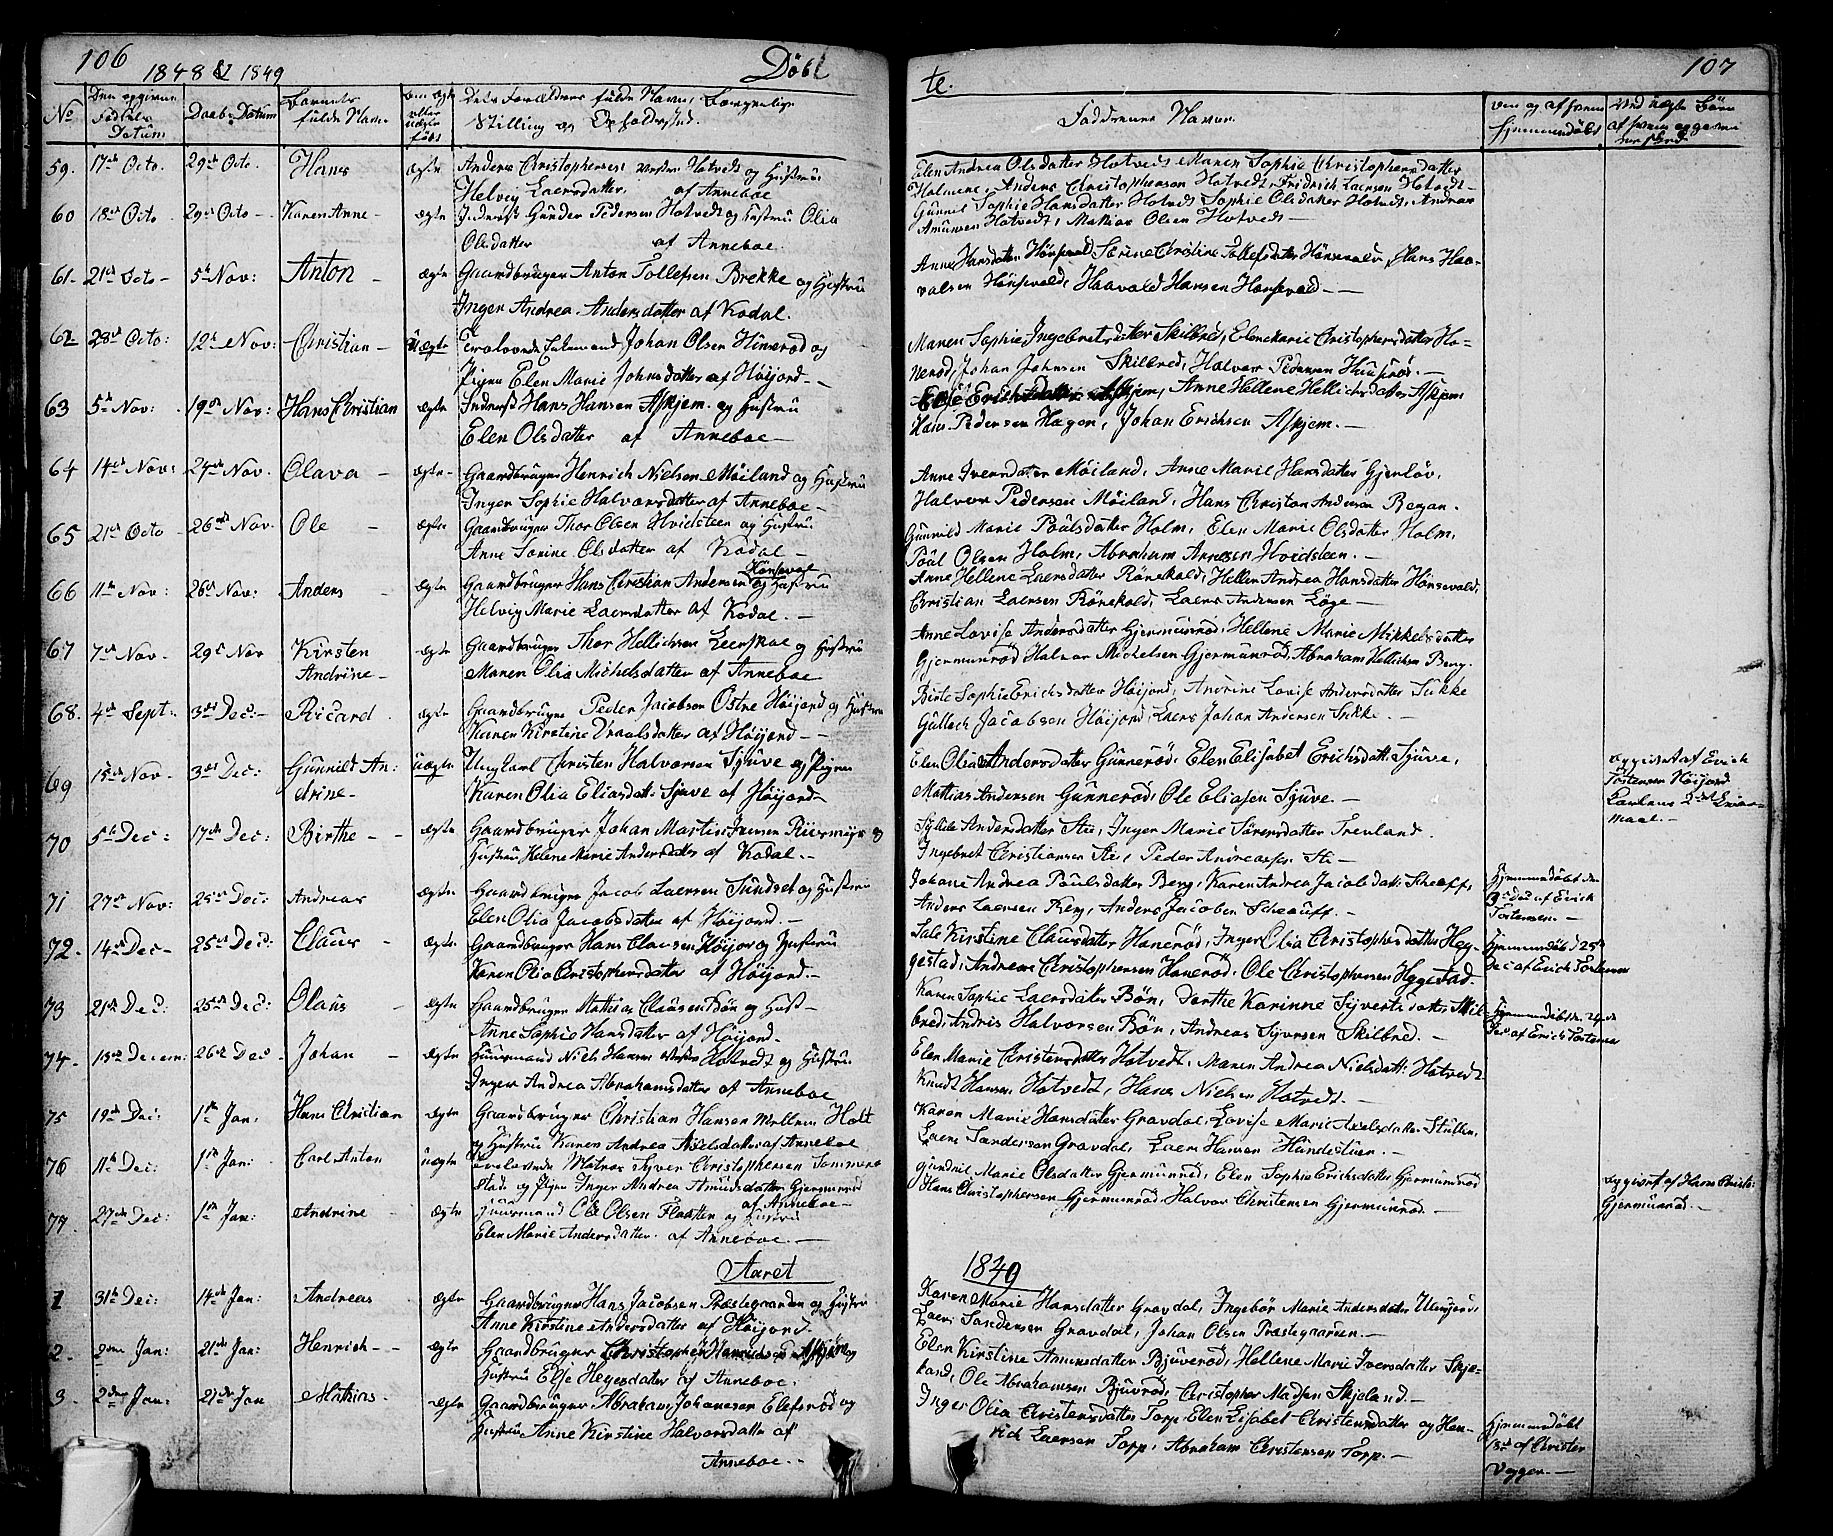 106
1848 & 1849
Døbte.
107
No
Datum
Daabs Datum
Barnets fulde Navn
Stilling og Opholdssted.
Faddernes Navne.
59. 17de Octo. 29de Octo. Hans ægte Anders Christophersen Hotvedt og Hustru
Helvig Laersdatter af Anneboe
Elen Andrea Olsdatter Hotvedt, Maren Sophie Christophersdatter
Anders Christophersen Hotvedt, Fridrich Laersen Hotvedt
60 18de Octo 29de Octo Karen Anne ægte Inderst Gunder Pedersen Hotvedt og Hustru Olia
Olsdatter af Anneboe.
Sophie Hansdatter Hotvedt Sophie Olsdatter Hotvedt, Andreas
Amunsen Hotvedt, Mathias Olsen Hotvedt
61 21de Octo 5te Nov: Anton ægte Gaardbruger Anton Tollefsen Brekke og Hustru
Inger Andrea Andersdatter af Kodal.
Anne Hansdatter Hønsevald Sørine Christine Tollefsdatter Hønsevald, Hans Haa-
valsen Hønsevald, Haavald Hansen Hønsevald
62 28de Octo: 12te Nov: Christian uægte Johan Olsen Hinerød og
Pigen Elen Marie Johnsdatter af Høijord
Maren Sophie Ingebretsdatter Skilbred, Elen Marie Christophersdatter Hi-
nerød, Johan Johnsen Skilbred, Halvor Pedersen
63 5te Nov: 19de Nov: Hans Christian ægte Inderst Hans Hansen Askjem og Hustru
Elen Olsdatter af Anneboe
Anne Hellene Hellichsdatter Askjem
Hans Pedersen Hagen, Johan Erichsen Askjem.
64 14de Nov: 24de Nov. Olava ægte Gaardbruger Henrich Nielsen Møiland og Hustru
Inger Sophie Halvorsdatter af Anneboe
Anne Iversdatter Møiland, Anne Marie Hansdatter Gjerløv,
Halvor Pedersen Møiland, Hans Christian Andersen
65 21de Octo 26de Nov. Ole ægte Gaardbruger Thor Olsen Hvidsteen og Hustru
Anne Sørine Olsdatter af Kodal
Gunnild Marie Poulsdatter Holm, Elen Marie Olsdatter Holm,
Poul Olsen Holm, Abraham Hvidsteen.
66 11te Nov: 26de Nov: Anders ægte Gaardbruger Hans Christian Andersen Hønsevald og Hustru
Helvig Marie Laersdatter af Kodal.
Anne Hellene Laersdatter Rønekold, Hellen Andrea Hansdatter Hønsevald,
Christian Laersen Rønekold, Laers Andersen Løge
67 7de Nov. 29de Nov Kirsten Andrine ægte Gaardbruger Thor Hellichsen Leerskoe og Hustru
Maren Olia Michelsdatter af Anneboe
Anne Lovise Andersdatter Gjermunrød, Hellene Marie Mikkelsdatter
Gjermunrød Halvor Michelsen Gjermunrød, Abraham Hellichsen Berg.
68. 4de Sept. 3die Dec: Ricard ægte Gaardbruger Peder Jacobsen Østre Høijord og Hustru
Karen Kirstine datter af Høijord
Birte Sophie Erichsdatter Høijord, Andrine Lovise Andersdatter Sukke
Gullach Jacobsen Høijord, Laers Johan Andersen Sukke.
69 15de Nov. 3die Dec: Gunnild Andrine uægte Ungkarl Christen Halvorsen Sjuve og Pigen
Karen Olia Eliasdatt: Sjuve af Høijord
Elen Olia Andersdatter Gunnerød, Elen Elisabet Erichsdatt: Sjuve,
Mathias Andersen Gunnerød, Ole Eliasen Sjuve.
opgivet af Erich Tostensen Høijord
70 5te Dec: 17de Dec: Birthe ægte Gaardbruger Johan Martin Jensen og
Hustru Helene Marie Andersdatter af Kodal.
Andersdatter Sti, Inger Marie Sørensdatter Trevland.
Ingebret Christiansen Sti, Peder Andreassen Sti
71 27de Nov: 25de Dec: Andreas ægte Gaardbruger Jacob Laersen Sundset og Hustru
Elen Olia Jacobsdatter af Høijord.
Johane Andrea Poulsdatter Berg, Karen Andrea Jacobsdatt:
Anders Laersen Berg, Anders Jacobsen
Hjemmedøbt den Dec af Erich Tostensen.
72. 14de Dec 25de Dec: Claus ægte Gaardbruger Hans Clausen Høijor og Hustru
Karen Olia Christophersdatter af Høijord.
Kirstine Clausdatter Hanerød, Inger Olia Christophersdatter Hey-
gestad, Andreas Christophersen Hanerød, Ole Christophersen Heggestad.
Hjemmedøbt d 25de Dec af Erich Tostensen
73 21de Dec. 25de Dec: Olaus ægte Gaardbruger Mathias Clausen Bøn og Hust
Anne Sophie Hansdatter af Høijord.
Karen Sophie Laersdatter Bøn, Dorthe Karinne Syversdatter Skil-
bred, Andris Halvorsen Bøn, Andreas Syversen Skilbred.
Hjemmedøbt d. 24de Dec af Erich Tostensen
74. 13de Decem: 26de Dec Johan ægte Huusmand Niels Hansen Hotvedt og Hustru
Inger Andrea Abrahamsdatter af Anneboe
Elen Marie Christensdatter Hotvedt, Maren Andrea Nielsdatt: Hotvedt
Knudt Hansen Hotvedt, Hans Nielsen Hotvedt.
75 19de Dec: 1ste Jan: Hans Christian ægte Gaardbruger Christian Hansen Mellem Holt
og Hustru Karen Andrea Axelsdatter af Anneboe
Karen Marie Hansdatter Gravdal, Lovise Marie Axelsdatter
Laers Sandersen Gravdal, Laers Hansen Hundestuen.
76 11te Dec: 1ste Jan: Carl Anton uægte Matros Syver Christophersen
og Pigen Inger Andrea Amundsdatter Gjermunrød
af Anneboe
Marie Olsdatter Gjermunrød, Elen Sophie Erichsdatter Gjermunrød
Hans Christophersen Gjermunrød, Halvor Christensen Gjermunrød.
opgivet af Hans Christ: Gjermunrød.
77. 27de Dec: 1ste Jan: Andrine ægte Huusmand Ole Olsen Flaatten og Hustru
Elen Marie Andersdatter af Anneboe.
Aaret 1849
1 31te Dec: 14de Jan: Andreas ægte Gaardbruger Hans Jacobsen Præstegaarden og Hustru
Anne Kirstine Andersdatter af Høijord.
Karen Marie Hansdatter Gravdal, Ingebor Marie Andersdatter
Laers Sandersen Gravdal, Johan Olsen Præstegaarden.
2. 2den Jan: 21de Jan: Henrich ægte Gaardbruger Christopher Askjem og
Hustru Else Hegersdatter af Anneboe.
Elen Kirstine Bjuverød, Hellene Marie Iversdatter Skje-
land, Ole Abrahamsen Bjuverød, Christopher Madsen Skjeland.
3. 2den Jan: 21de Jan Mathias ægte Gaardbruger Abraham Johanesen Elefsrød og
Hustru Anne Kirstine Halvorsdatter af
Anneboe.
Inger Olia Christensdatter Torp, Elen Lisabet Christensdatter og Hen-
rich Laersen Topp, Abraham Christensen Torp.
Hjemmedøbt af Christen